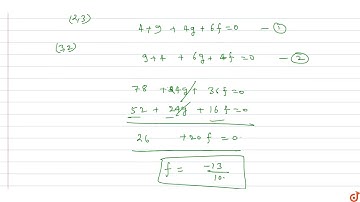 (2,3)
4+9 + 4g + 6f = 0 — ①
(3,2)
9+4 + 6g + 4f = 0 — ②
78 + 24g + 36f = 0
52 + 24g + 16f = 0
26 + 20f = 0
f = -13/10